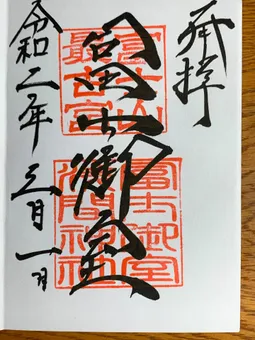 奉拝
富士山
最古宮
冨士御室
冨士御室
浅間神社
令和二年三月一日